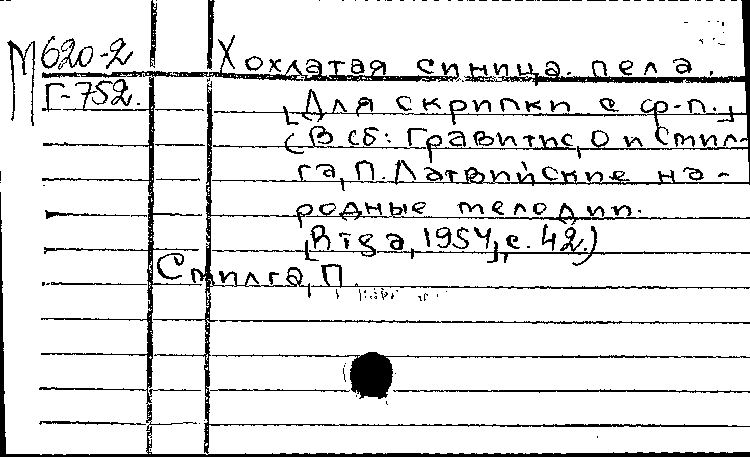 М 620-2 Хохлатая синица пела.
Г-752. [Для скрипки с ф-п.]
(В сб: Гравитис, О и Стил-
га, П. Латвийские на-
родные мелодии.
[Riga, 1954], с. 42.)
Стилга, П.